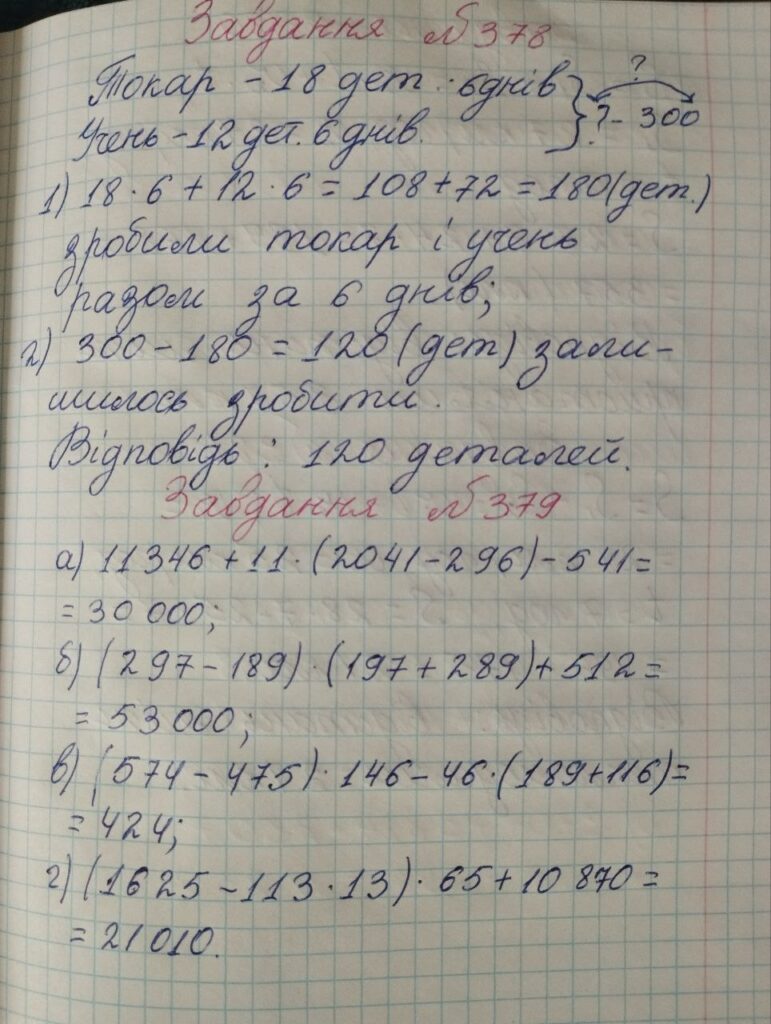 Завдання №378
?
Токар - 18 дет. 6 днів
Учень - 12 дет. 6 днів.
? - 300
1) 18 · 6 + 12 · 6 = 108 + 72 = 180 (дет.)
зробили токар і учень
разом за 6 днів;
2) 300 - 180 = 120 (дет) зали-
шилось зробити.
Відповідь: 120 деталей.
Завдання №379
а) 11346 + 11 · (2041 - 296) - 541 =
= 30 000;
б) (297 - 189) · (197 + 289) + 512 =
= 53 000;
в) (574 - 475) · 146 - 46 · (189 + 116) =
= 424;
г) (1625 - 113 · 13) · 65 + 10 870 =
= 21 010.